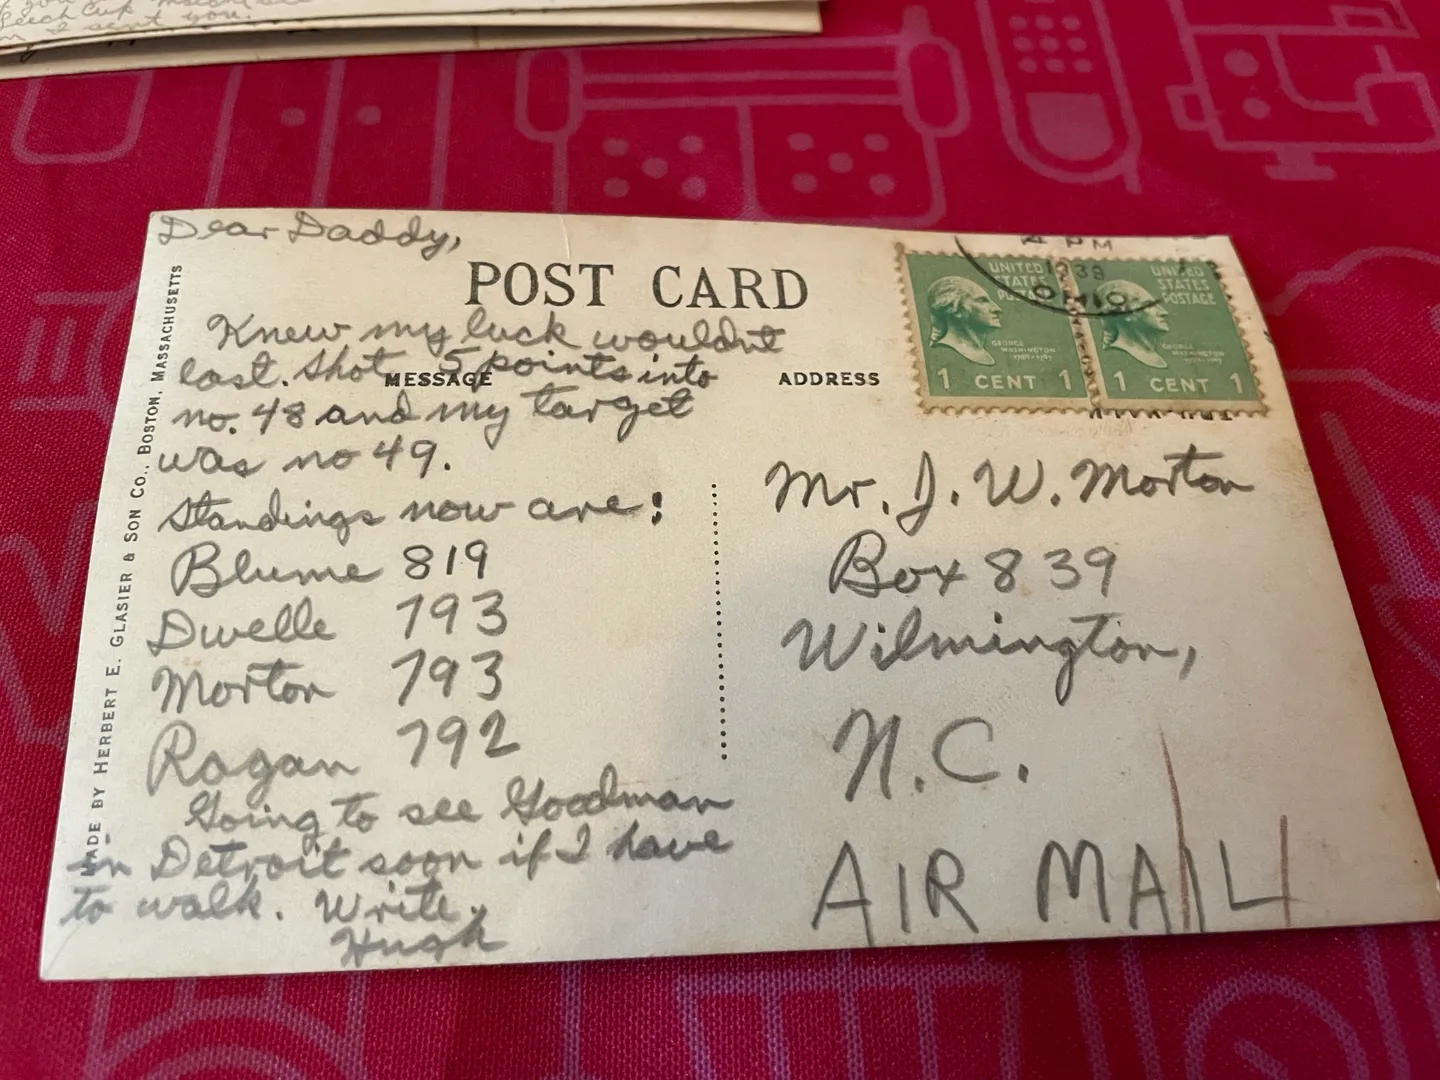 I sent you.
Dear Daddy,
POST CARD
Knew my luck wouldnt
last. Shot 5 points into
MESSAGE
no. 48 and my target
was no 49.
Standings now are:
Blume 819
Dwelle 793
Morton 793
Ragan 792
Going to see Goodman
in Detroit soon if I have
to walk. Write.
Hugh
MADE BY HERBERT E. GLASIER & SON CO., BOSTON, MASSACHUSETTS
ADDRESS
PM
1938
OHIO
UNITED
STATES
POSTAGE
GEORGE
WASHINGTON
1 CENT 1
UNITED
STATES
POSTAGE
GEORGE
WASHINGTON
1 CENT 1
Mr. J. W. Morton
Box 839
Wilmington,
N.C.
AIR MAIL